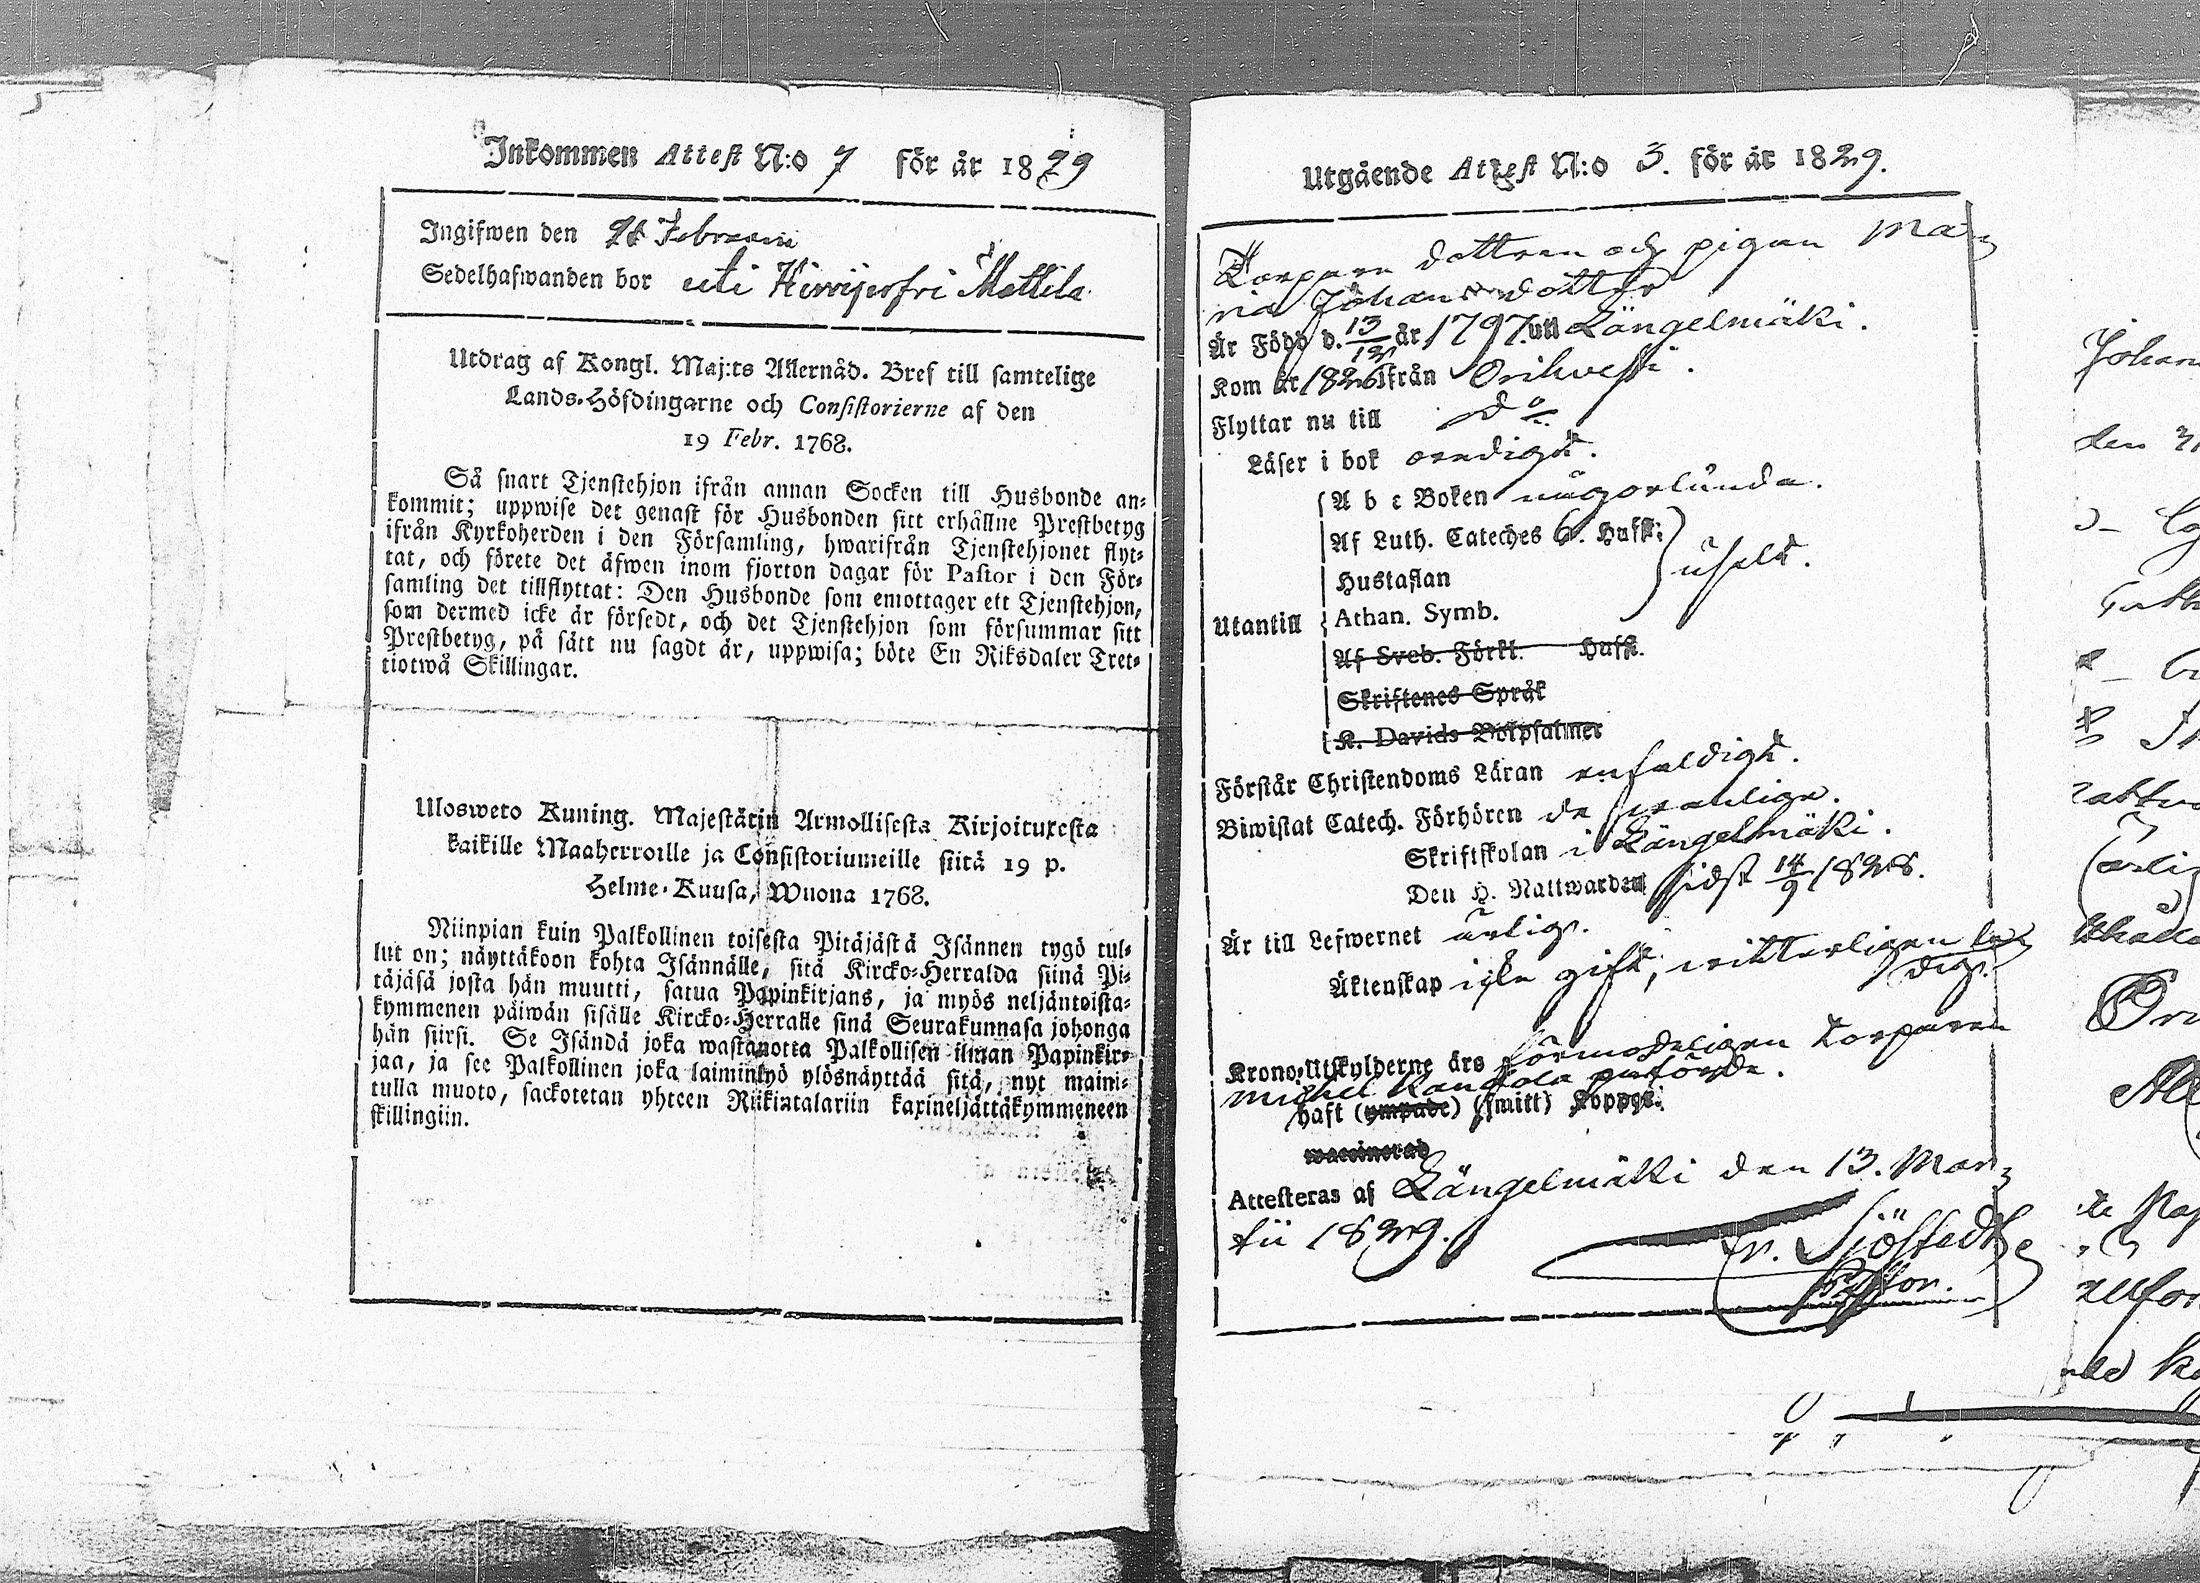 Inkommen Attest N:o 7 för år 1829
Ingifwen den Februarii
Sedelhafwanden bor uti Mattila
Utdrag af Kongl. Maj:ts Allernåd. Bref till samtelige
Lands-Höfdingarne och Consistorierne af den
19 Febr. 1768.
Så snart Tjenstehjon ifrån annan Socken till Husbonde an-
kommit; uppwise det genast för Husbonden sitt erhållne Prestbetyg
ifrån Kyrkoherden i den Församling, hwarifrån Tjenstehjonet flyt-
tat, och förete det äfwen inom fjorton dagar för Pastor i den För-
samling det tillflyttat: Den Husbonde som emottager ett Tjenstehjon,
som dermed icke är försedt, och det Tjenstehjon som försummar sitt
Prestbetyg, på sätt nu sagdt är, uppwisa; böte En Riksdaler Tret-
tiotwå Skillingar.
Ulosweto Kuning. Majestätin Armollisesta Kirjoituxesta
kaikille Maaherroille ja Consistoriumeille siitä 19 p.
Helme-Kuusa, Wuona 1768.
Niinpian kuin Palkollinen toisesta Pitäjästä Isännen tygö tul-
lut on; näyttäkoon kohta Isännälle, sitä Kircko-Herralda siinä Pi-
täjäsä josta hän muutti, satua Papinkirjans, ja myös neljäntoista-
kymmenen päiwän sisälle Kircko-Herralle sinä Seurakunnasa johonga
hän siirsi. Se Isändä joka wastanotta Palkollisen ilman Papinkir-
jaa, ja see Palkollinen joka laiminlyö ylösnäyttää sitä, nyt maini-
tulla muoto, sackotetan yhteen Riikintalariin kaxineljättäkymmeneen
skillingiin.
Utgående Attest N:o 3. för år 1829.
Torpare dottren och pigan Ma-
ria Johansdotter
Är Född d. 13/12 år 1797 uti Längelmäki.
Kom år 1826 ifrån Orihvesi.
Flyttar nu till do
Läser i bok ordigt.
A b c Boken någorlunda.
Af Luth. Cateches 6. Hufst:
Hustaflan uselt.
Utantill Athan. Symb.
Af Sveb. Förkl. Hufst.
Skriftenes Språk
K. Davids Botpsalmer
Förstår Christendoms Läran enfaldigt.
Biwistat Catech. Förhören de
Skriftskolan i Längelmäki.
Den H. Nattwarden sidst 14/9 1828.
Är till Lefwernet ärlig.
Äktenskap icke gift, witterligen le-
dig.
Krono-Utskylderne äro förmodeligen Torparen
Michel
haft (ympade) (smitt) Koppor.
waccinerad
Attesteras af Längelmäki den 13. Mar-
tii 1829.
Fr. Sjöstedt
Pastor.
Johan
den